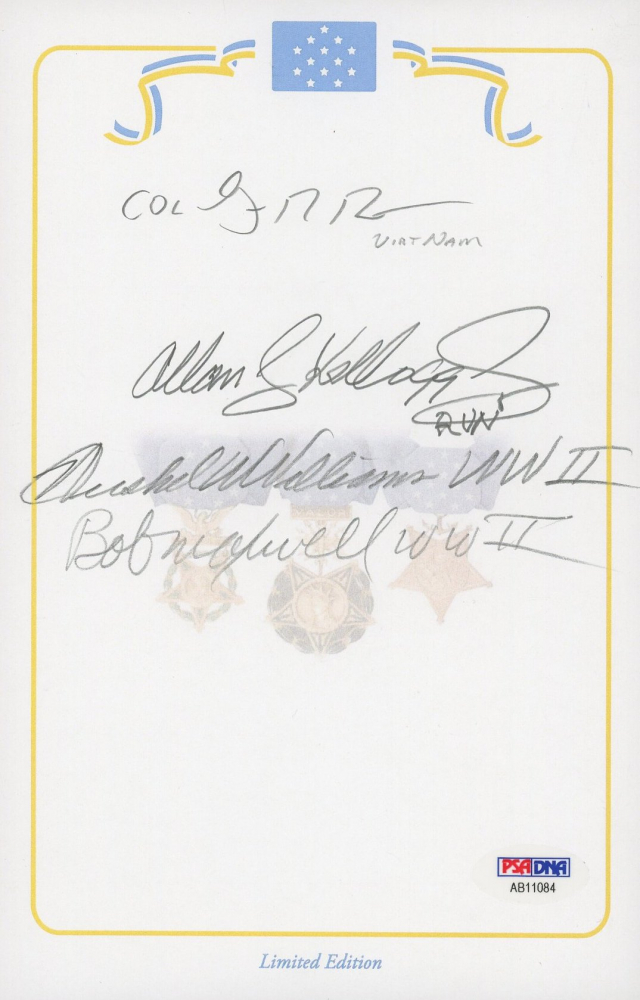 COL
VIET NAM
Allan J Kellogg Jr
RVN
Hershel W Williams WW II
Bob Maxwell WW II
PSA DNA
AB11084
Limited Edition